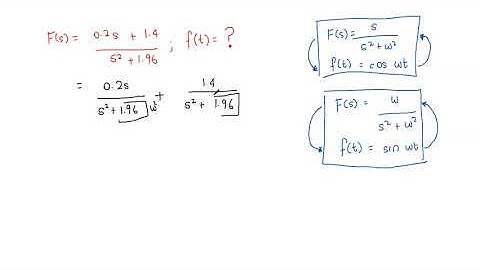 F(s) = 0.2s + 1.4 / s² + 1.96 ; f(t) = ?
= 0.2s / s² + 1.96 w² + 1.4 / s² + 1.96
F(s) = s / s² + ω²
f(t) = cos ωt
F(s) = ω / s² + ω²
f(t) = sin ωt